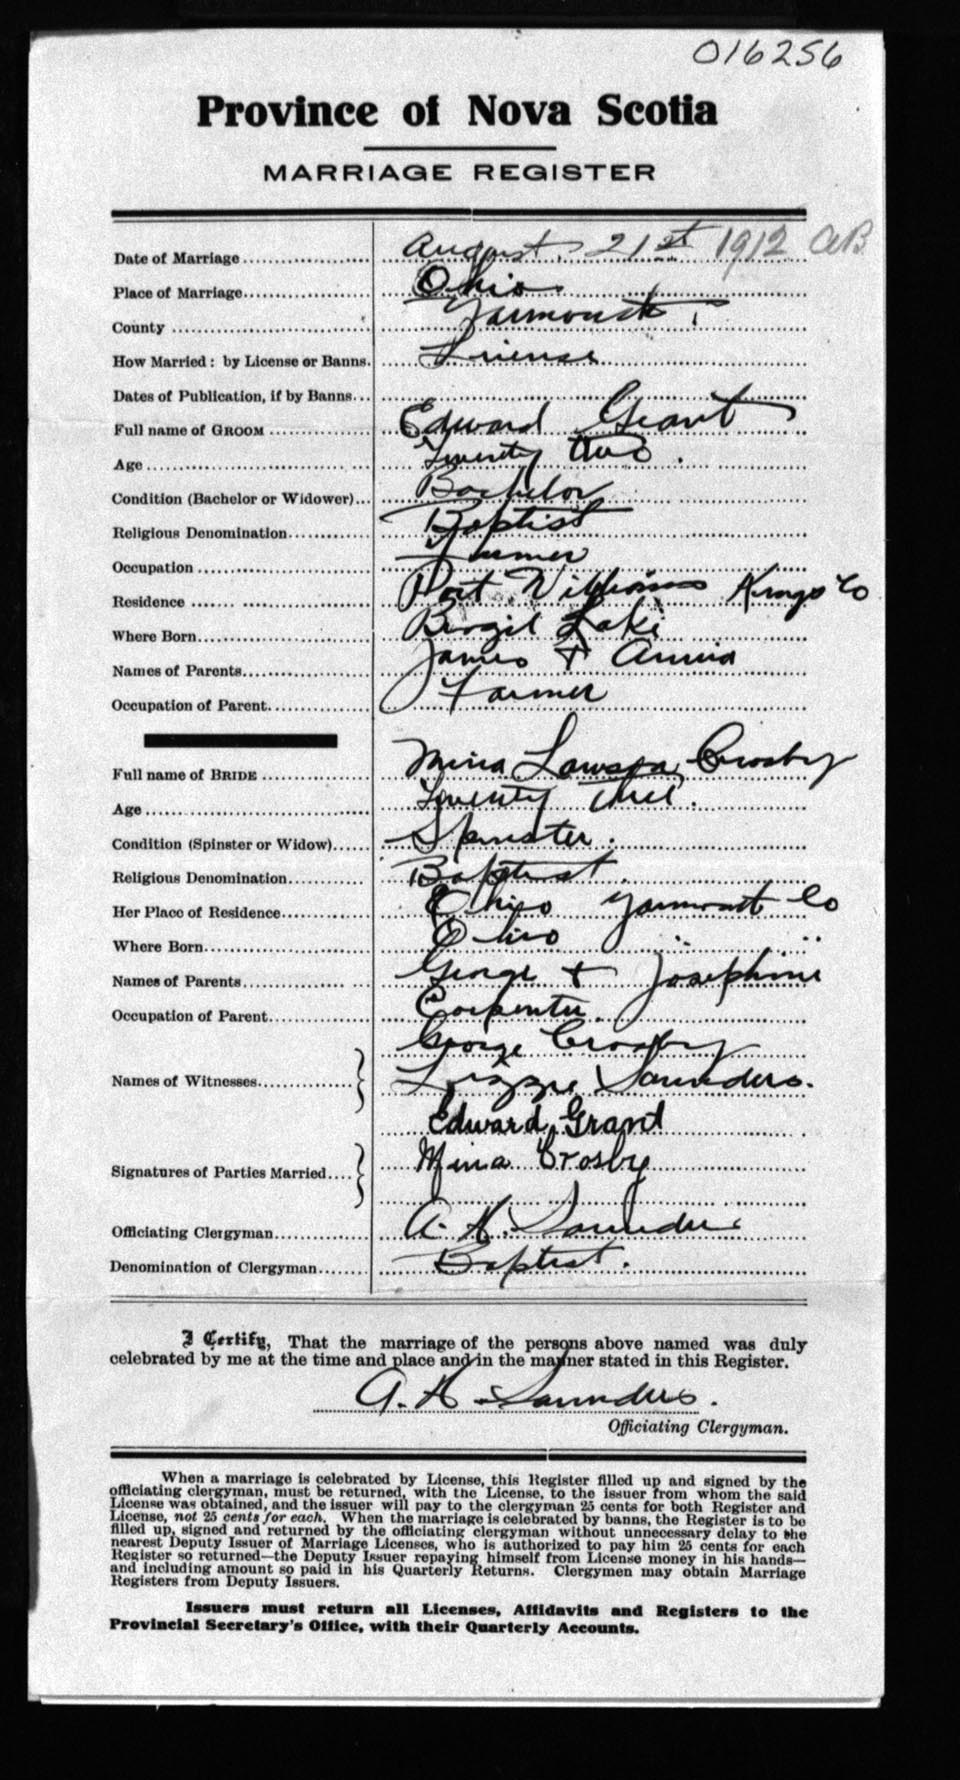 016256
Province of Nova Scotia
MARRIAGE REGISTER
Date of Marriage August. 21st 1912 AB
Place of Marriage Ohio
County Yarmouth
How Married: by License or Banns. License
Dates of Publication, if by Banns
Full name of GROOM Edward Grant
Age Twenty two.
Condition (Bachelor or Widower) Bachelor
Religious Denomination Baptist
Occupation Farmer
Residence Port Williams Kings Co
Where Born Lake
Names of Parents James + Annia
Occupation of Parent Farmer
Full name of BRIDE Mina Lawson Crosby
Age Twenty three.
Condition (Spinster or Widow) Spinster.
Religious Denomination Baptist.
Her Place of Residence Ohio Yarmouth Co
Where Born Ohio " "
Names of Parents George + Josephine
Occupation of Parent Carpenter.
George Crosby
Names of Witnesses Lizzie Saunders.
Edward Grant
Signatures of Parties Married Mina Crosby
Officiating Clergyman A. H. Saunders
Denomination of Clergyman Baptist.
I Certify, That the marriage of the persons above named was duly
celebrated by me at the time and place and in the manner stated in this Register.
A. H. Saunders.
Officiating Clergyman.
When a marriage is celebrated by License, this Register filled up and signed by the
officiating clergyman, must be returned, with the License, to the issuer from whom the said
License was obtained, and the issuer will pay to the clergyman 25 cents for both Register and
License, not 25 cents for each. When the marriage is celebrated by banns, the Register is to be
filled up, signed and returned by the officiating clergyman without unnecessary delay to the
nearest Deputy Issuer of Marriage Licenses, who is authorized to pay him 25 cents for each
Register so returned—the Deputy Issuer repaying himself from License money in his hands—
and including amount so paid in his Quarterly Returns. Clergymen may obtain Marriage
Registers from Deputy Issuers.
Issuers must return all Licenses, Affidavits and Registers to the
Provincial Secretary's Office, with their Quarterly Accounts.